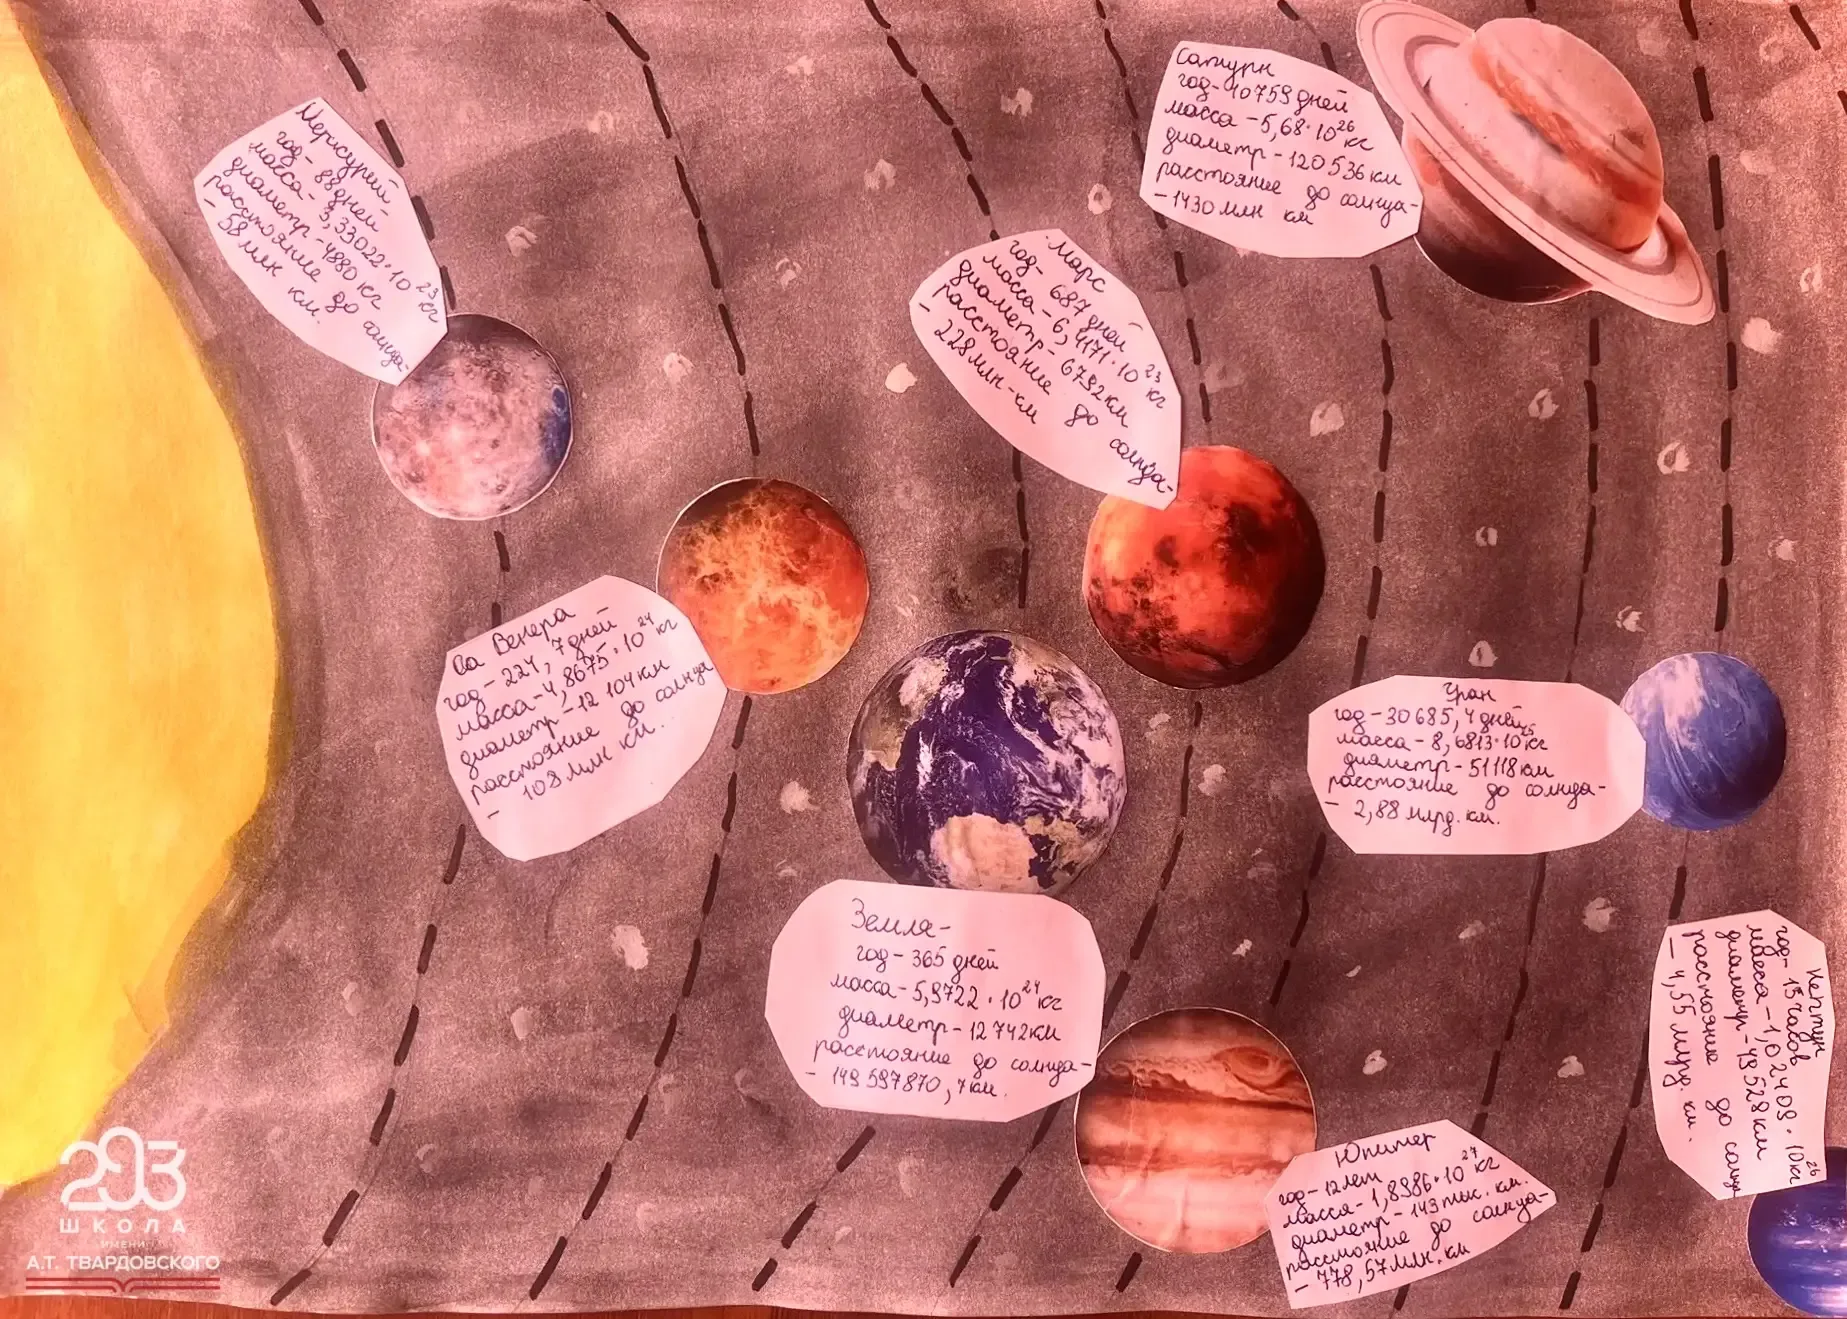 Меркурий-
год - 88 дней
масса - 3,33022·10²³ кг
диаметр - 4880 кг
расстояние до солнца-
- 58 млн км.
Венера
год - 224,7 дней
масса - 4,8675·10²⁴ кг
диаметр - 12 104 км
расстояние до солнца
- 108 млн км.
Земля-
год - 365 дней
масса - 5,9722·10²⁴ кг
диаметр - 12 742 км
расстояние до солнца-
- 149 597870,7 км.
Марс
год - 687 дней
масса - 6,4171·10²³ кг
диаметр - 6792 км
расстояние до солнца-
- 228 млн-км
Юпитер
год - 12 лет
масса - 1,8986·10²⁷ кг
диаметр - 143 тыс. км.
расстояние до солнца-
- 778,57 млн. км
Сатурн
год - 10759 дней
масса - 5,68·10²⁶ кг
диаметр - 120 536 км
расстояние до солнца-
- 1430 млн км
Уран
год - 30 685,4 дней
масса - 8,6813·10²⁵ кг
диаметр - 51118 км
расстояние до солнца-
- 2,88 млрд. км.
Нептун
год - 15 часов
масса - 1,02409·10²⁶ кг
диаметр - 49 528 км
расстояние до солнца
- 4,55 млрд. км.
203
ШКОЛА
ИМЕНИ
А.Т. ТВАРДОВСКОГО